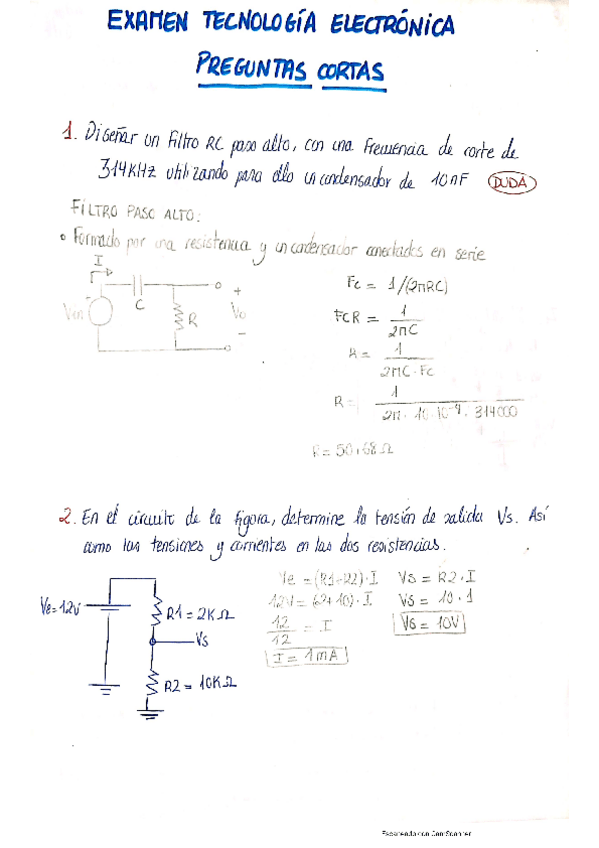 EXAMEN TECNOLOGÍA ELECTRÓNICA
PREGUNTAS CORTAS
1. Diseñar un filtro RC paso alto, con una frecuencia de corte de
314KHz utilizando para ello un condensador de 10nF DUDA
FILTRO PASO ALTO:
• Formado por una resistencia y un condensador conectados en serie
I
Vin
C
R
+
Vo
-
Fc = 1/(2πRC)
FCR = 1
2πC
R = 1
2πC·Fc
R = 1
2π·10·10⁻⁹·314000
R = 50,68 Ω
2. En el circuito de la figura, determine la tensión de salida Vs. Así
como las tensiones y corrientes en las dos resistencias.
Ve=12V
R1 = 2KΩ
Vs
R2 = 10KΩ
Ve = (R1+R2)·I
12V = (2+10)·I
12
12 = I
I = 1mA
Vs = R2·I
Vs = 10·1
Vs = 10V
Escaneado con CamScanner